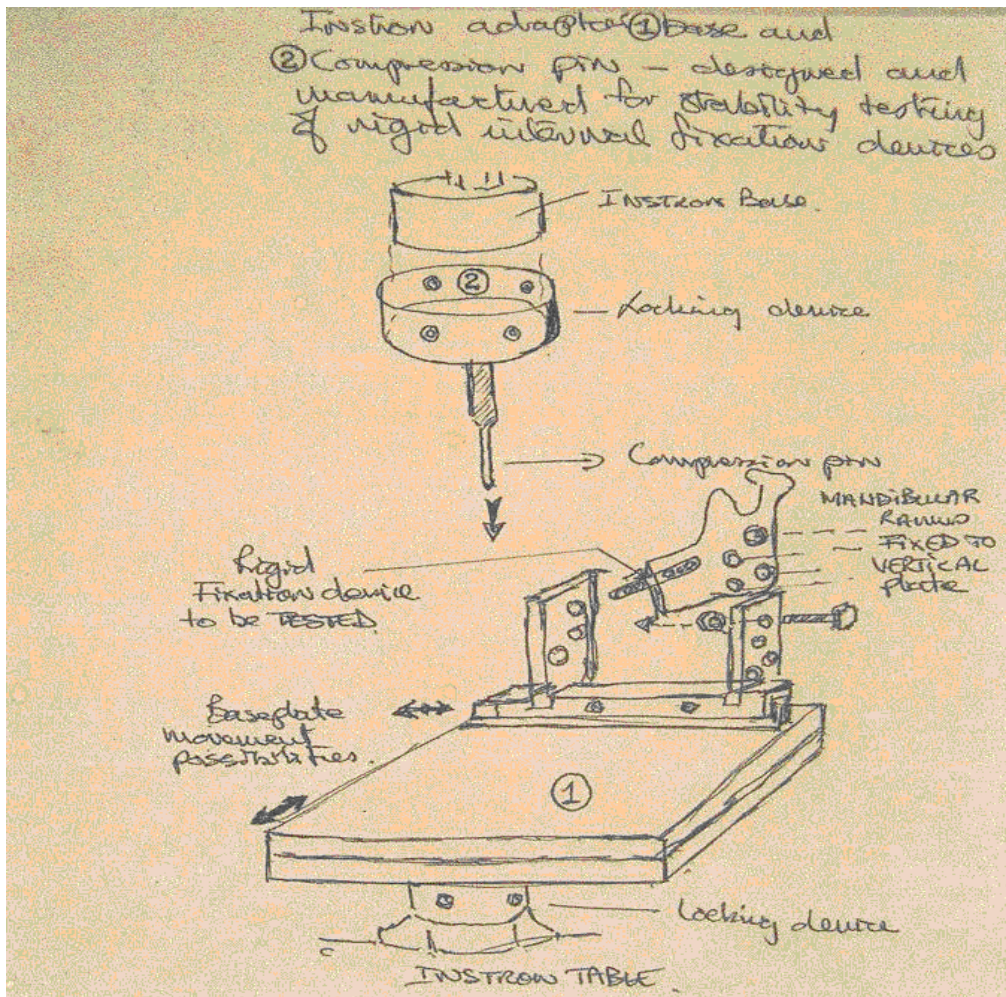 Instron adaptor ① base and
② Compression pin - designed and
manufactured for stability testing
of rigid internal fixation devices
INSTRON BASE.
②
Locking device
Compression pin
MANDIBULAR
RAMUS
FIXED TO
VERTICAL
plate
Rigid
Fixation device
to be TESTED.
Baseplate
movement
possibilities.
①
Locking device
INSTRON TABLE.